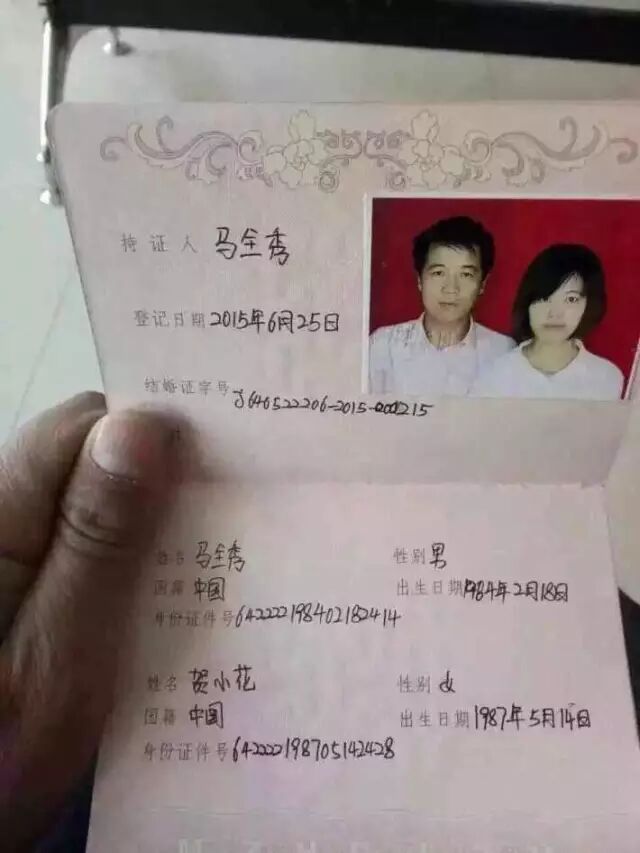 持证人 马全秀
登记日期 2015年6月25日
结婚证字号 J640522206-2015-000215
姓名 马全秀 性别 男
国籍 中国 出生日期 1984年2月18日
身份证件号 642222198402182414
姓名 贺小花 性别 女
国籍 中国 出生日期 1987年5月14日
身份证件号 642222198705142428